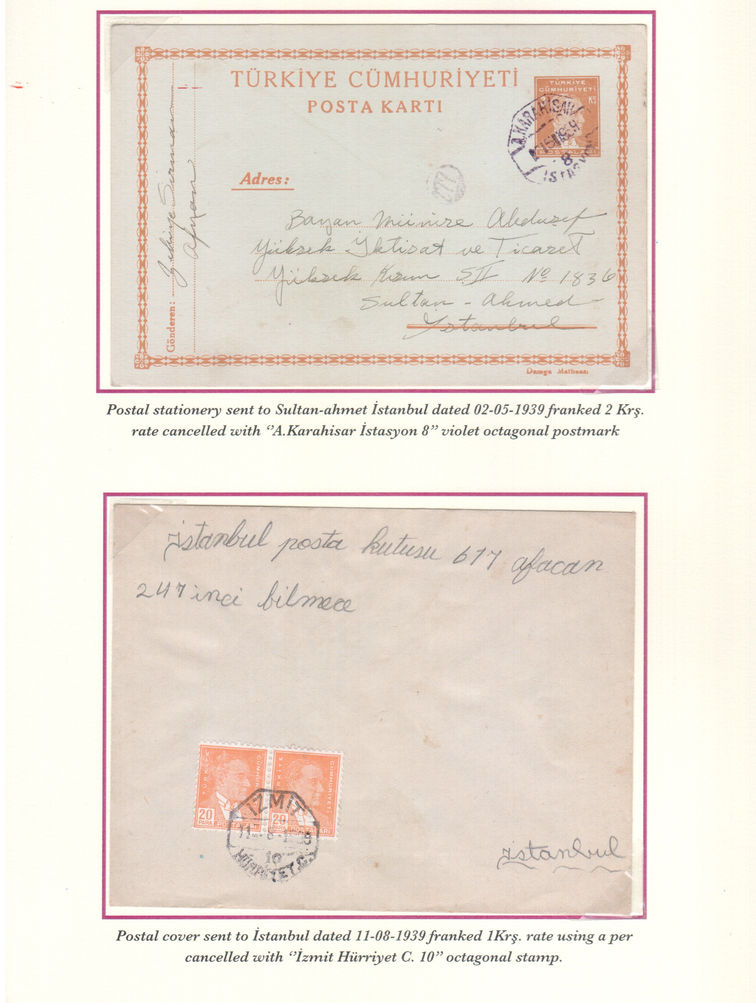 TÜRKİYE CÜMHURİYETİ
POSTA KARTI
TÜRKİYE
CÜMHURİYETİ
A.KARAHİSAR
8
İSTASYON
Adres:
Gönderen:
Afyon
Bayan Münire
Yüksek İktisat ve Ticaret
Yüksek Kısım SII No 1836
Sultan-Ahmed
İstanbul
Damga Matbaası
Postal stationery sent to Sultan-ahmet İstanbul dated 02-05-1939 franked 2 Krş.
rate cancelled with ‘’A.Karahisar İstasyon 8’’ violet octagonal postmark
istanbul posta kutusu 617 afacan
247 inci bilmece
TÜRKİYE CÜMHURİYETİ
20
CÜMHURİYETİ
20
İZMİT
10
HÜRRİYET.C.
istanbul
Postal cover sent to İstanbul dated 11-08-1939 franked 1Krş. rate using a per
cancelled with ‘’İzmit Hürriyet C. 10’’ octagonal stamp.